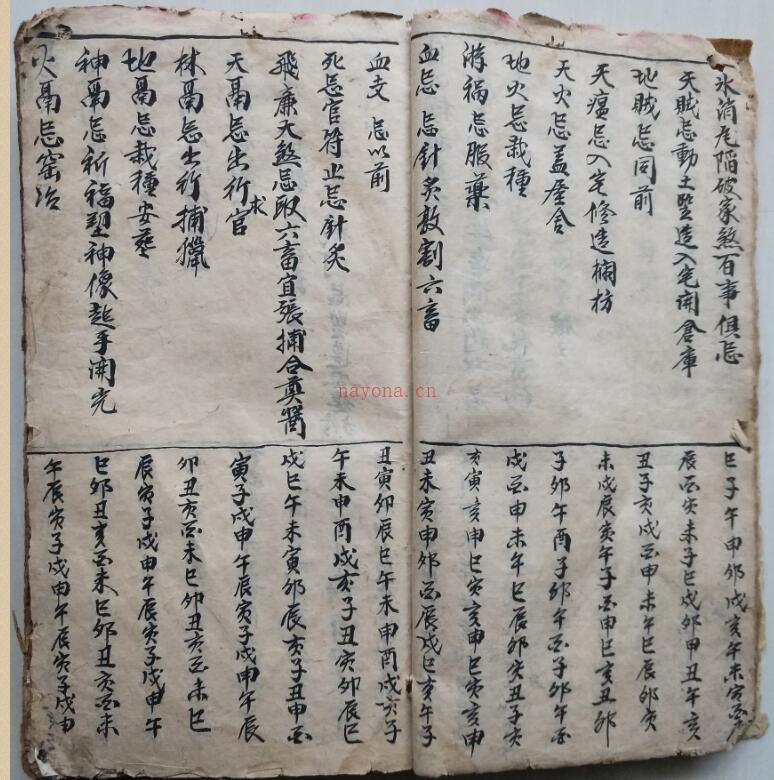 氷消瓦陷破家煞百事俱忌
巳子午申卯戌亥午未寅酉辰
天賊忌動土竪造入宅開倉庫
辰酉寅未子巳戌卯申丑午亥
地賊忌同前
丑子亥戌酉申未午巳辰卯寅
天瘟忌入宅修造欄枋
未戌辰寅午子酉申巳亥丑卯
天火忌盖屋舍
子卯午酉子卯午酉子卯午酉
地火忌栽種
戌酉申未午巳辰卯寅丑子亥
游禍忌服藥
亥寅亥申巳寅亥申巳寅亥申
血忌 忌針炙敖割六畜
丑未寅申卯酉辰戌巳亥午子
血支 忌以前
丑寅卯辰巳午未申酉戌亥子
死忌官符止忌針炙
午未申酉戌亥子丑寅卯辰巳
飛廉大煞忌取六畜宜張捕合奠醬
戌巳午未寅卯辰亥子丑申酉
天鬲忌出行求官
寅子戌申午辰寅子戌申午辰
林鬲忌出行捕獵
卯丑亥酉未巳卯丑亥酉未巳
地鬲忌栽種安葬
辰寅子戌申午辰寅子戌申午
神鬲忌祈福塑神像起手開光
巳卯丑亥酉未巳卯丑亥酉未
火鬲忌窑冶
午辰寅子戌申午辰寅子戌申
nayona.cn